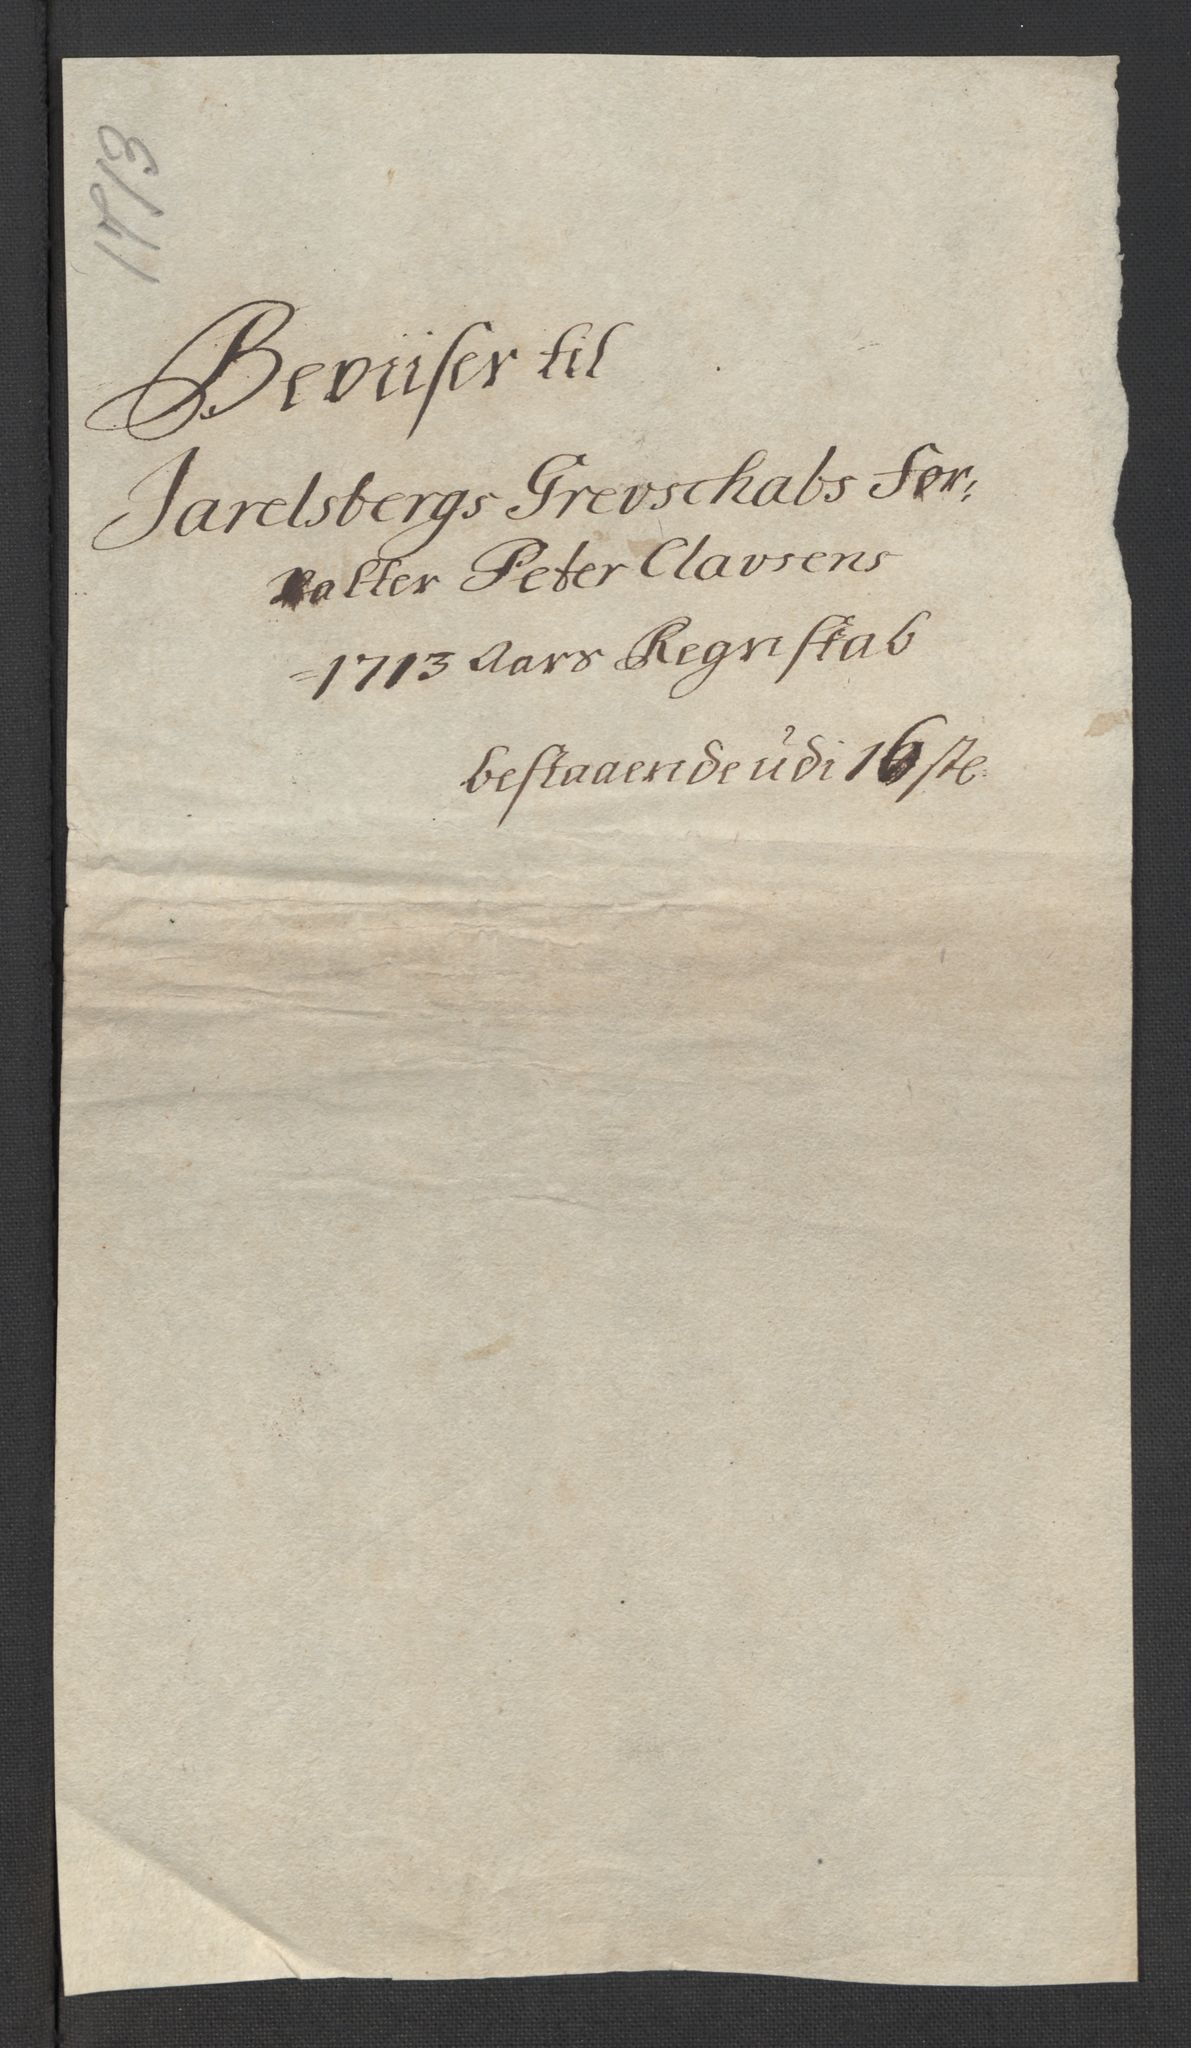 1713
Beviiser til
Jarelsbergs Grevschabs For:
valter Peter Clavsens
1713 Aars Regnskab
bestaaende udi 16 ste.